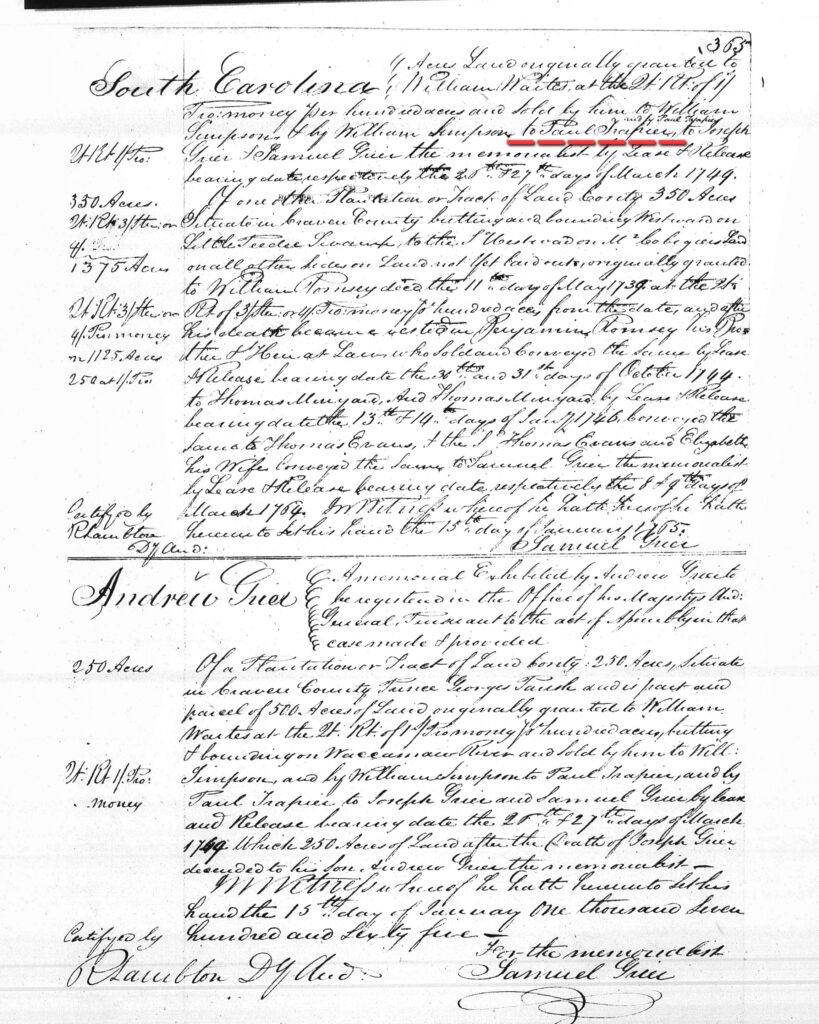 365
South Carolina
Acres Land originally granted to
William Waites at the Qt. Rt. of 1/
Pro: money per hundred acres and Sold by him to William
and by Paul Trapier
Simpson & by William Simpson to Paul Trapier, to Joseph
Qt. Rt 1/ Pro:
Grier & Samuel Grier the memorialist by Lease & Release
bearing date respectively the 26th & 27th days of March 1749.
350 Acres.
of one other Plantation or Tract of Land Conty 350 Acres
Qt. Rt. 3/ Ster: or
Situate in Craven County butting and bounding Westward on
4/
Little Peedee Swamp, to the Westward on Land
1375 Acres
on all other sides on Land not Yet laid out, originally granted
to William Romsey decd the 11th day of May 1739 at the Qt.
Qt. Rt. 3/ Ster: or
Rt. of 3/ Ster: or 4/ Pro: money hundred acres from the date, and after
4/ Pro: money
his death became vested in Benjamin Romsey his Bro
on 1125 Acres
ther & Heir at Law, who Sold and Conveyed the Same by Lease
250 at 1/ Pro
& Release bearing date the 30th and 31st days of October 1744.
to Thomas Minyard, And Thomas Minyard by Lease & Release
bearing date the 13th & 14th days of Jany 1746, Conveyed the
Same to Thomas Evans, & the Sd Thomas Evans and Elizabeth
his Wife Conveyed the Same to Samuel Grier the memorialist
by Lease & Release bearing date respectively the 8 & 9th days of
Certifyed by
March 1764. In Witness whereof he hath
R Lambton
hereunto Set his hand the 15th day of January 1765.
Dy Aud:
Samuel Grier
Andrew Grier
A memorial Exhibited by Andrew Grier to
be registered in the Office of his Majestys Aud:
General, Pursuant to the act of Assembly in that
case made & provided
250 Acres
Of a Plantation or Tract of Land Conty: 250 Acres, Situate
in Craven County Prince Georges Parish and is part and
parcel of 500 Acres of Land originally granted to William
Waites at the Qt. Rt. of 1/ Pro money hundred acres, butting
& bounding on Waccamaw River and sold by him to Will:
Qt. Rt 1/ Pro:
Simpson, and by William Simpson to Paul Trapier, and by
money
Paul Trapier to Joseph Grier and Samuel Grier by lease
and Release bearing date the 26th & 27th days of March
1749. Which 250 Acres of Land after the Death of Joseph Grier
decended to his son Andrew Grier the memorialist —
In Witness whereof he hath hereunto Set his
hand the 15th day of January One thousand Seven
Certifyed by
hundred and Sixty five —
For the memorialist
R Lambton Dy Aud:
Samuel Grier